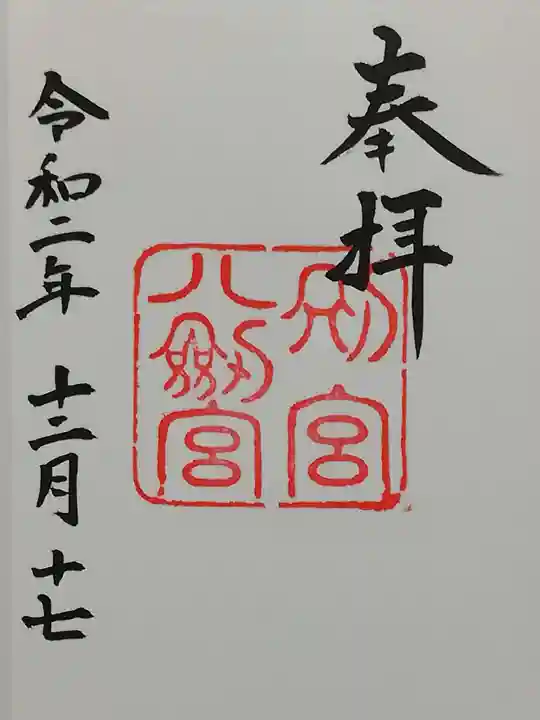 奉拝
別宮
八剱宮
令和二年 十二月 十七